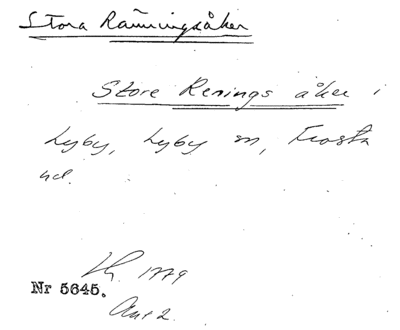 Stora Ränningsåker
Store Renings åker i
Lyby, Lyby sn, Frosta
hd.
1779
Nr 5645.
Akt 2.